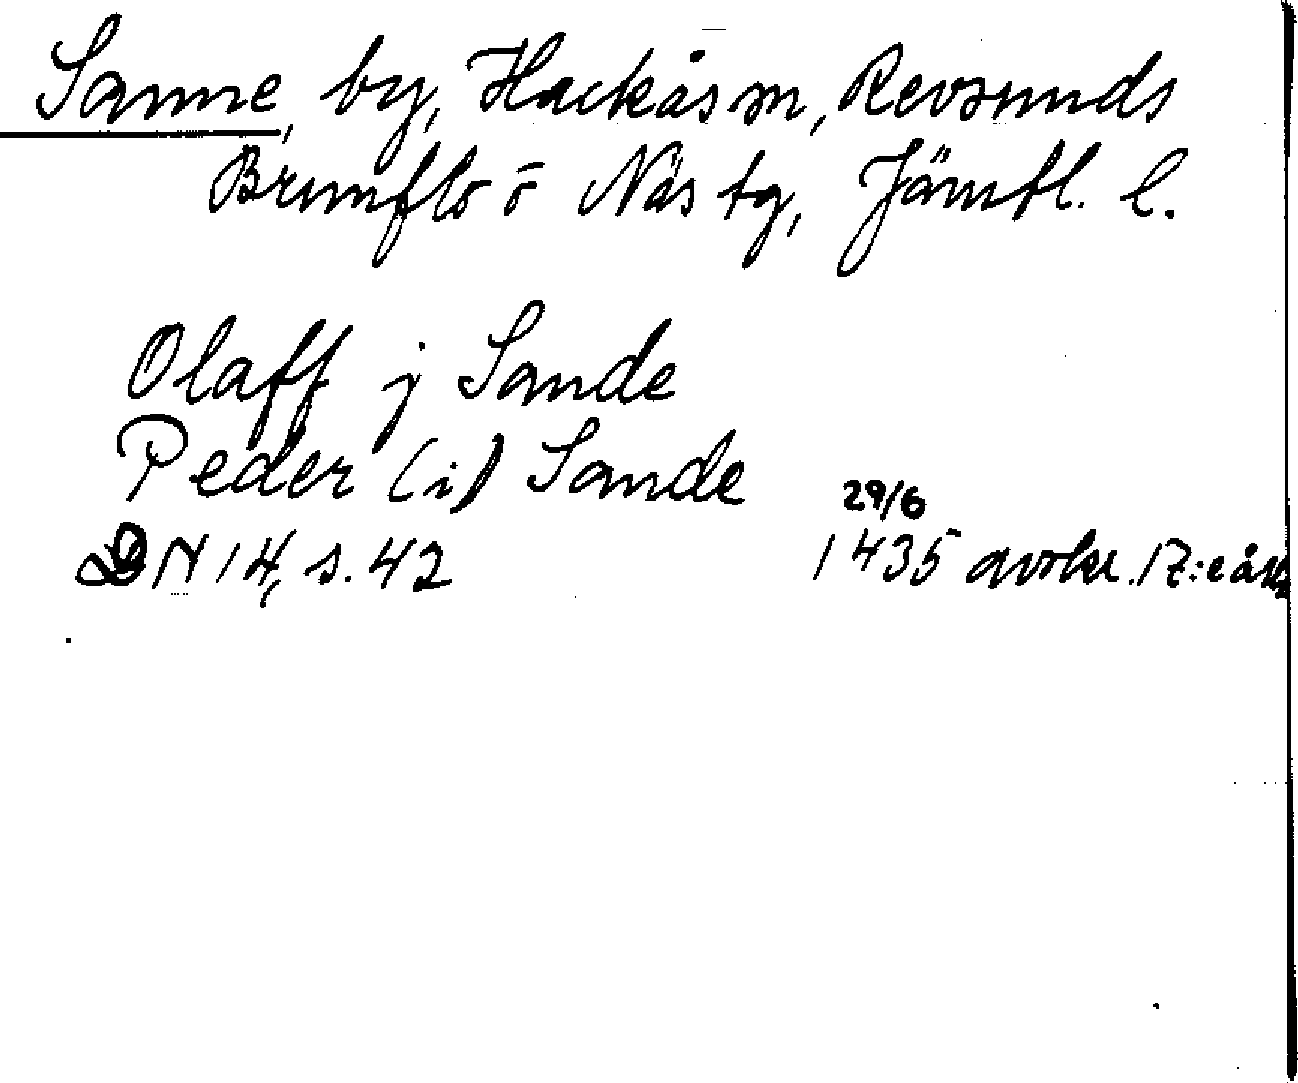 Sanne, by, Hackås sn, Revsunds
Brunflo o Näs tg, Jämtl. l.
Olaff j Sande
Peder (i) Sande
29/6
DN 14, s. 42 1435 avskr. 17:e årh